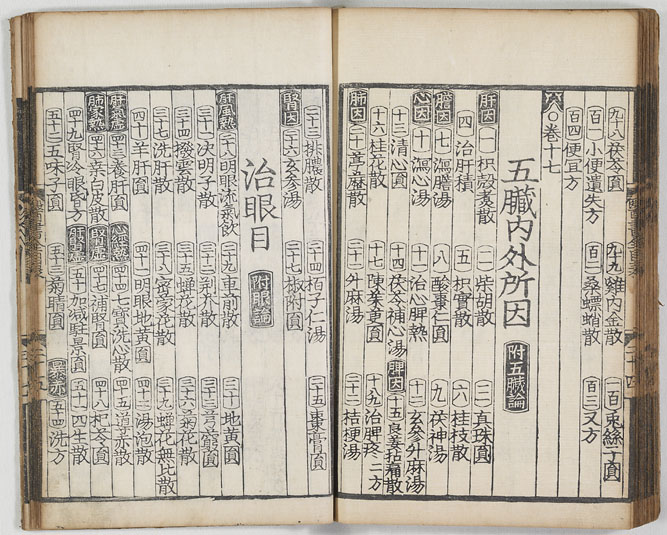 九十八茯苓圓 九十九雞內金散 一百兔絲子圓
百一小便遺失方 百二桑螵蛸散 百三又方
百四便宜方
卷十七
五臟內外所因 附五臟論
肝因 一枳殼煮散 二柴胡散 三真珠圓
四治肝積 五枳實散 六桂枝散
膽因 七瀉膽湯 八酸棗仁圓 九茯神湯
心因 十瀉心湯 十一治心脾熱 十二玄參升麻湯
十三清心圓 十四茯苓補心湯 脾因 十五良姜拈痛散
十六桂花散 十七 十八九治脾疼二方
肺因 二十 二十一升麻湯 二十二桔梗湯
二十三排膿散 二十四栢子仁湯 二十五棗膏圓
腎因 二十六玄參湯 二十七椒附圓
治眼目 附眼論
肝風熱 二十八明眼流氣飲 二十九車前散 三十地黃圓
三十一決明子散 三十二剉芥散 三十三芎藭圓
三十四撥雲散 三十五蟬花散 三十六菊花散
三十七洗肝散 三十八密蒙花散 三十九蟬花無比散
四十羊肝圓 四十一明眼地黃圓 四十二湯泡散
肝氣虛 四十三養肝圓 心經熱 四十四七寶洗心散 四十五道赤散
肺家熱 四十六桑白皮散 腎虛 四十七補腎圓 四十八杞苓圓
四十九腎冷眼昏方 肝腎虛 五十加減駐景圓 五十一四生散
五十二五味子圓 五十三菊睛圓 暴赤 五十四洗方